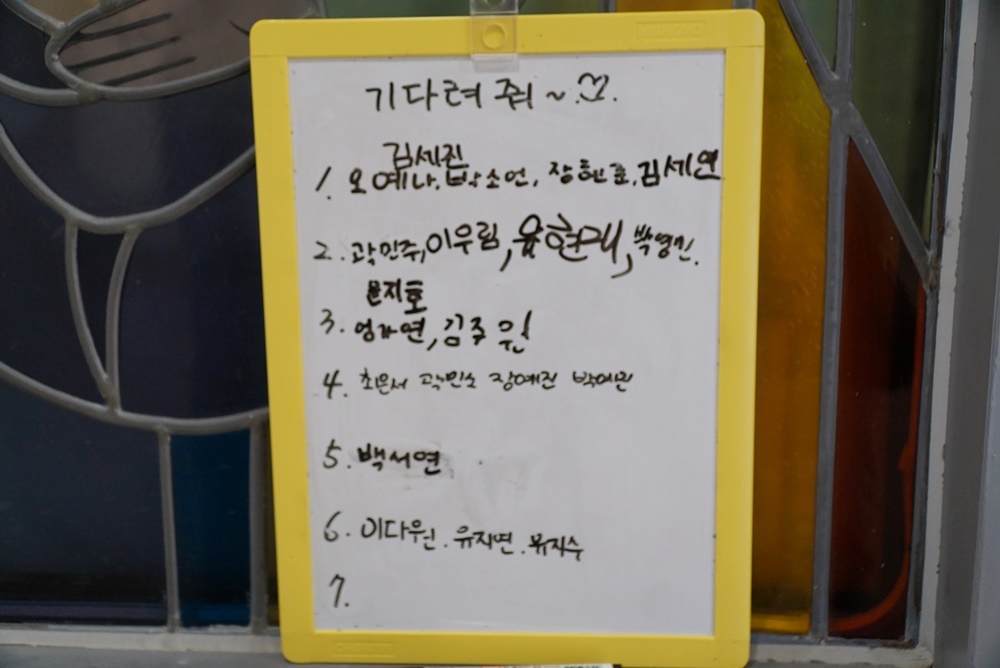 기다려 줘~♡.
김세진
1. 오예나, 박소연, 장현준, 김세연
2. 곽민주, 이우림, 윤현대, 박영민.
윤지호
3. 엄가연, 김주원
4. 최은서 곽민소 장예진 박예진
5. 백서연
6. 이다원. 유지연. 유지수
7.